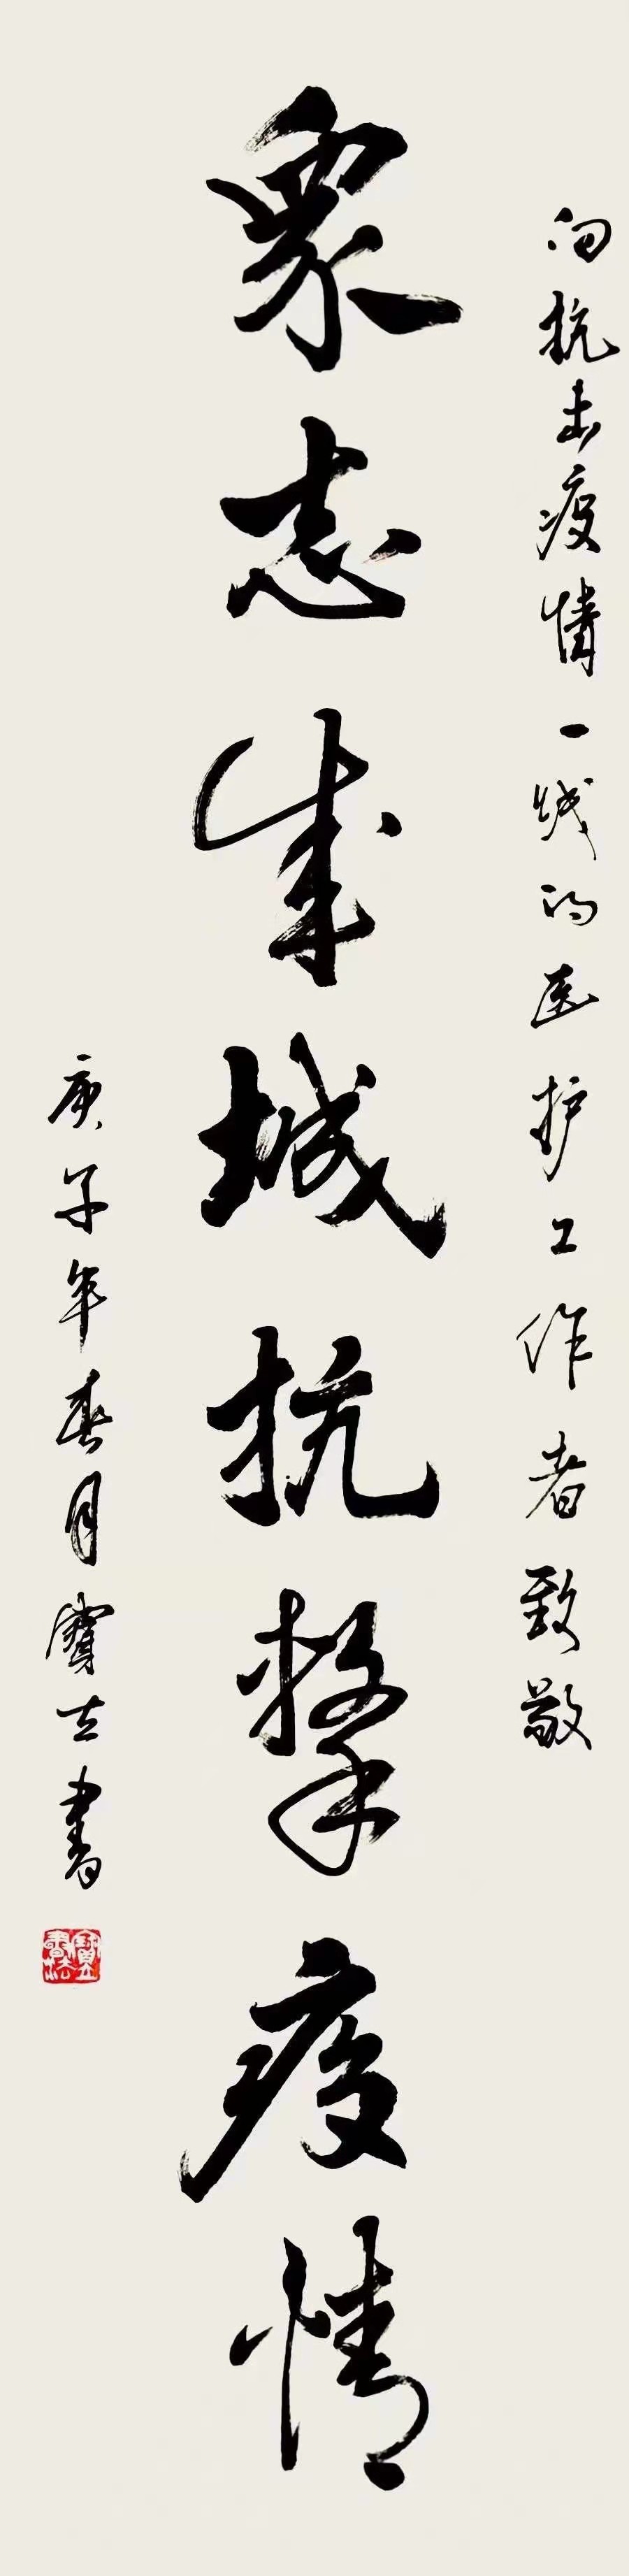 向抗击疫情一线的医护工作者致敬
眾志成城抗擊疫情
庚子年春月寶立書
寶立書法